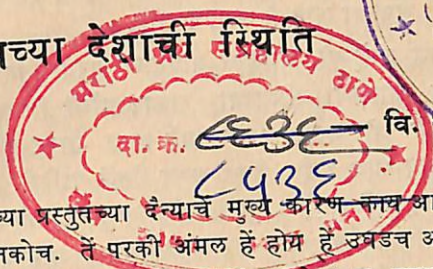 च्या देशाची स्थिति
मराठी ग्रंथ संग्रहालय ठाणे
दा. क्र. ८६३६ वि.
८५३६
च्या प्रस्तुतच्या दैन्याचें मुख्य कारण काय
कोच. तें परकी अंमल हें होय हें उघडच